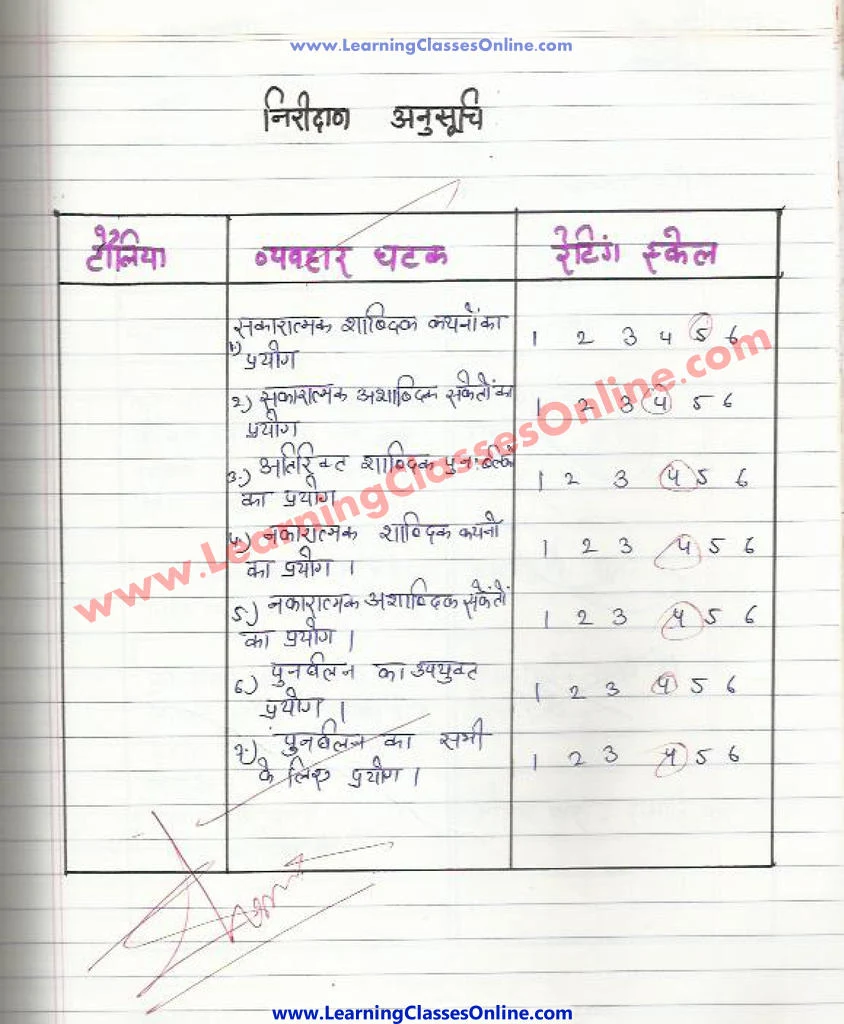 www.LearningClassesOnline.com
निरीक्षण अनुसूचि
टैलिया व्यवहार घटक रेटिंग स्केल
सकारात्मक शाब्दिक कथनों का 1 2 3 4 5 6
1) प्रयोग
2) सकारात्मक अशाब्दिक संकेतों का 1 2 3 4 5 6
प्रयोग
3.) अतिरिक्त शाब्दिक पुनःबलन 1 2 3 4 5 6
का प्रयोग
4) नकारात्मक शाब्दिक कथनो 1 2 3 4 5 6
का प्रयोग ।
5.) नकारात्मक अशाब्दिक संकेतों 1 2 3 4 5 6
का प्रयोग ।
6.) पुनर्बलन का उपयुक्त 1 2 3 4 5 6
प्रयोग ।
7.) पुनर्बलन का सभी 1 2 3 4 5 6
के लिए प्रयोग ।
www.LearningClassesOnline.com
www.LearningClassesOnline.com